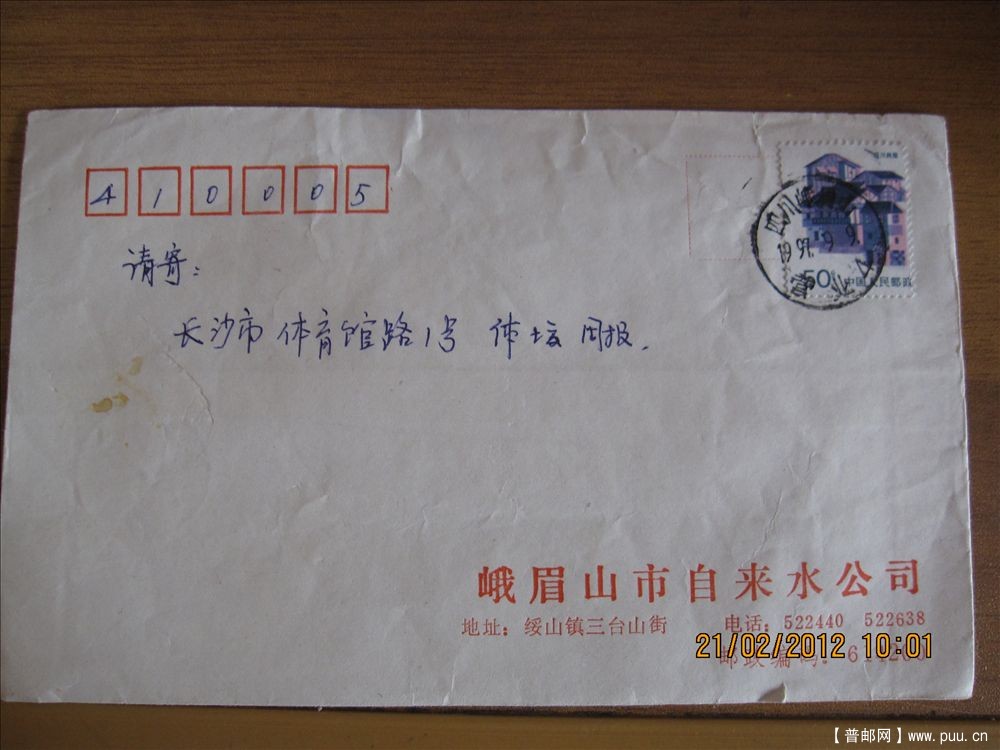 410005
四川民居
四川峨眉山
1997.9.9.
营业
50分
中国人民邮政
请寄：
长沙市体育馆路1号 体坛周报.
峨眉山市自来水公司
地址：绥山镇三台山街 电话：522440 522638
21/02/2012 10:01
邮政编码：614200
【普邮网】www.puu.cn